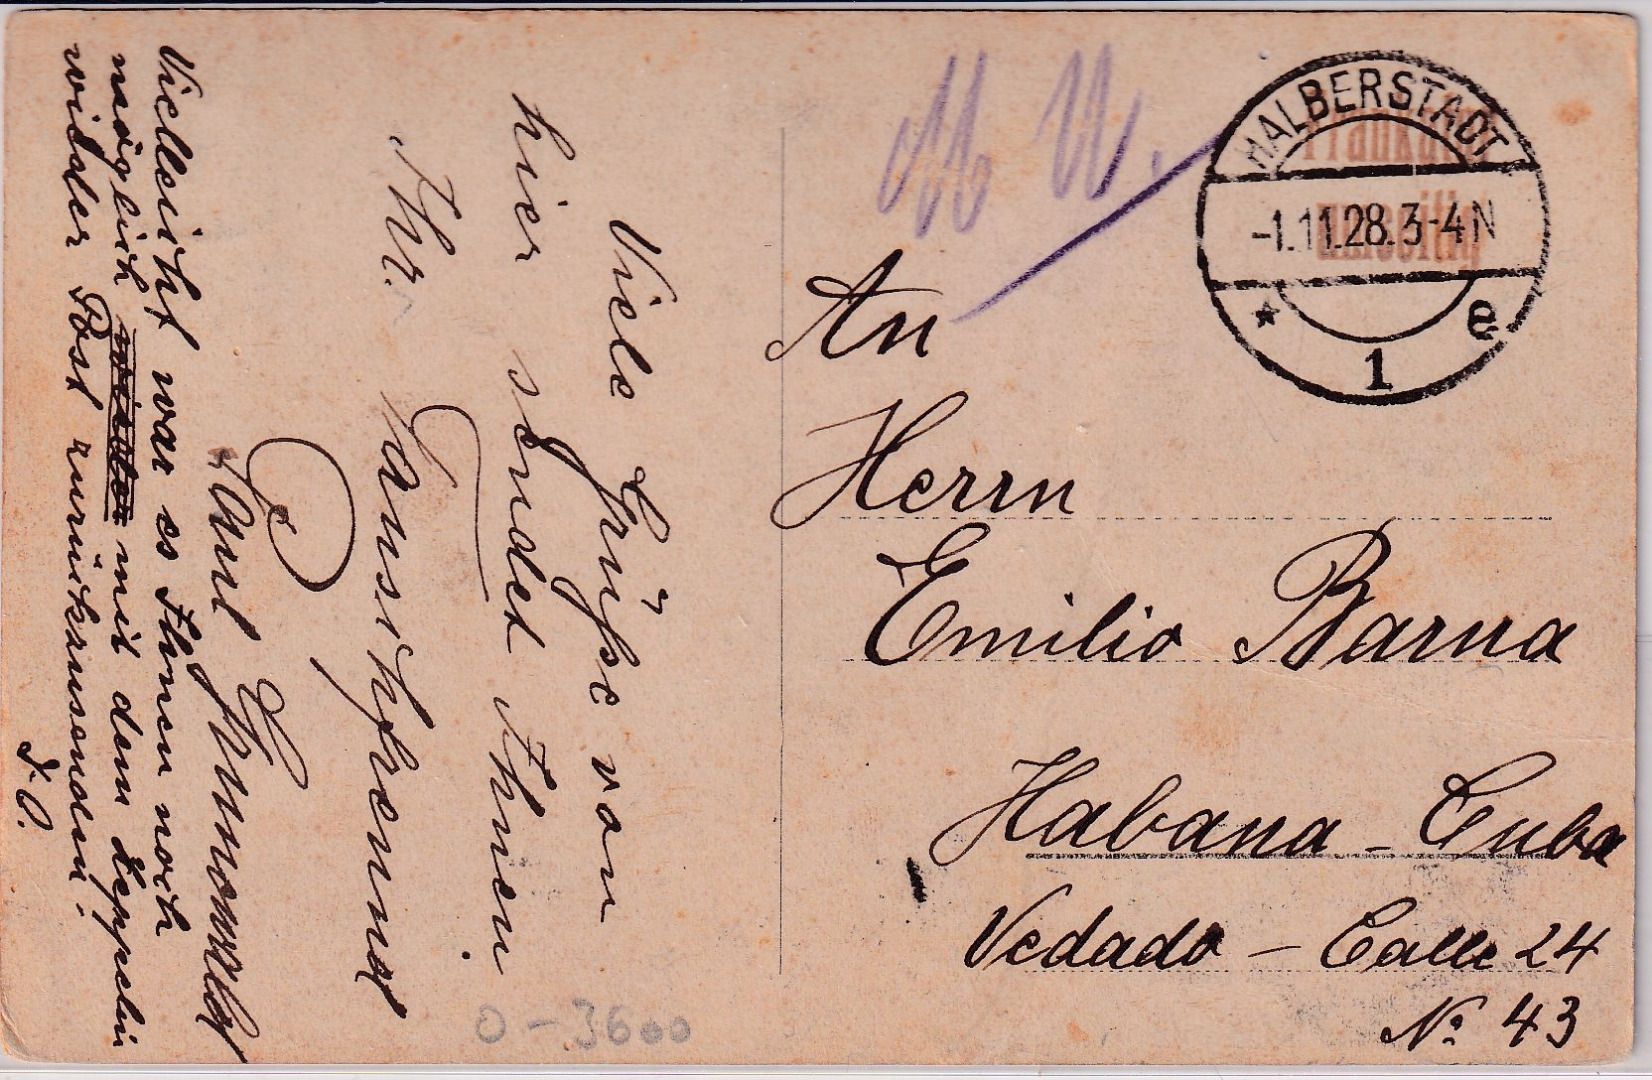 Viele Grüße von
hier sendet Ihnen
Ihr Tauschfreund
Paul
Vielleicht war es Ihnen noch
möglich mit dem Zeppelin
wider Post zurückzusenden.
D. O.
An
Herrn
Emilio Barna
Habana - Cuba
Vedado - Calle 24
No. 43
HALBERSTADT
Frankatur
umseitig
-1.11.28.3-4N
* 1 e
0-3600